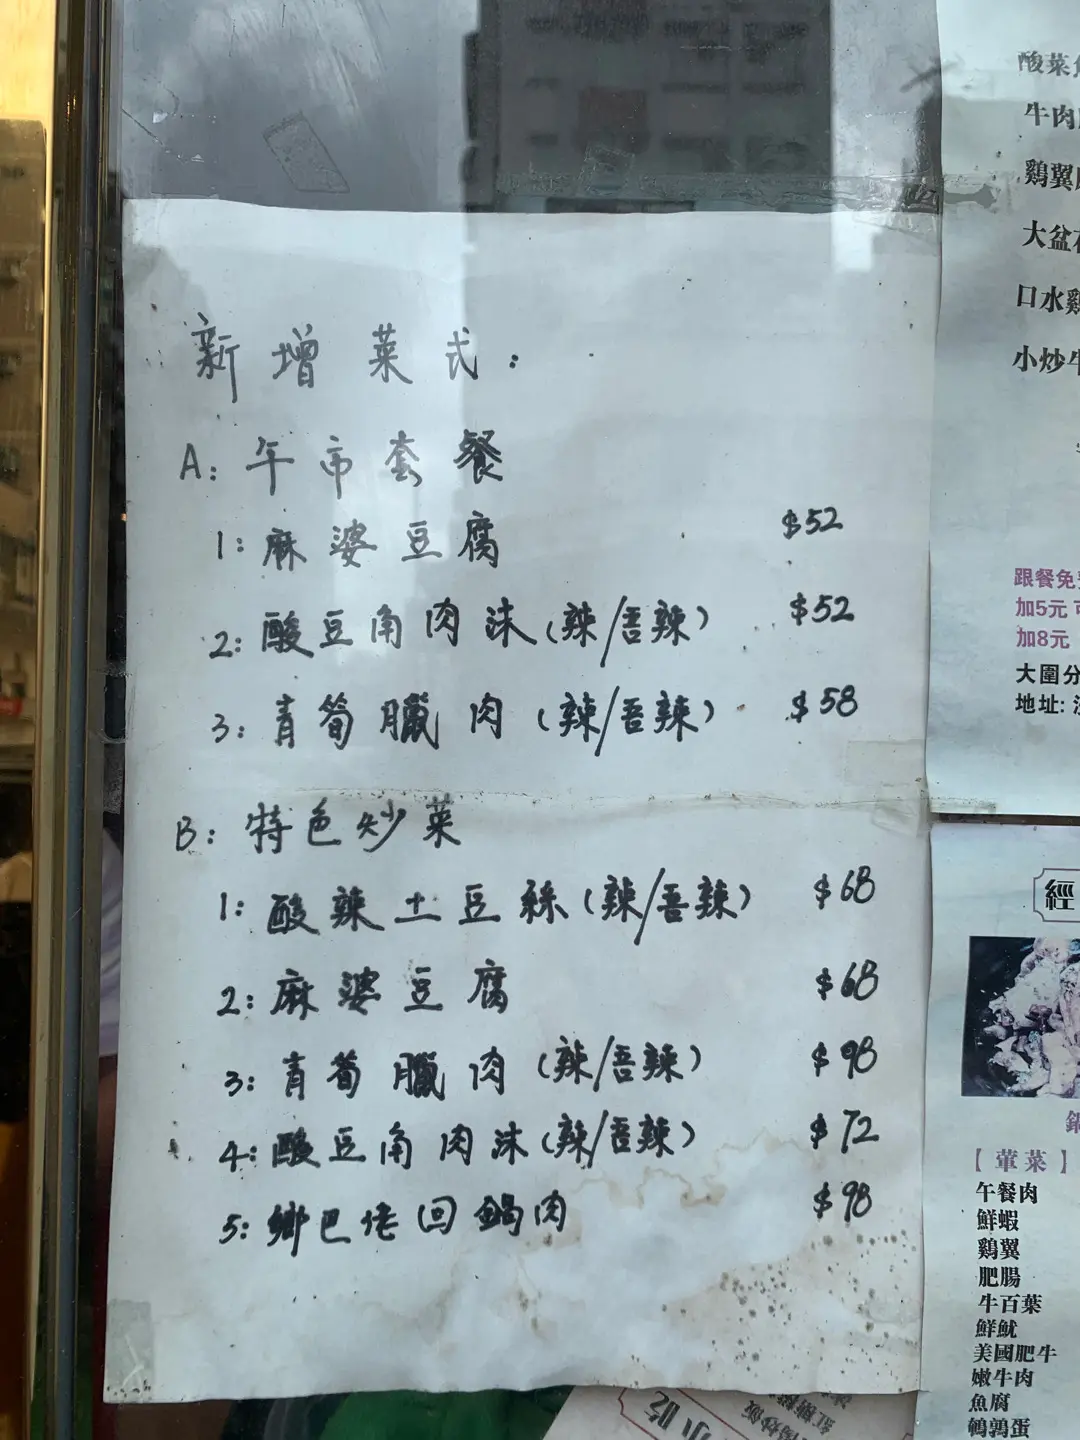 新增菜式：
A：午市套餐
1：麻婆豆腐 $52
2：酸豆角肉沫（辣/吾辣） $52
3：青筍臘肉（辣/吾辣） $58
B：特色炒菜
1：酸辣土豆絲（辣/吾辣） $68
2：麻婆豆腐 $68
3：青筍臘肉（辣/吾辣） $98
4：酸豆角肉沫（辣/吾辣） $72
5：鄉巴佬回鍋肉 $98
酸菜
牛肉
鷄翼
大盆
口水鷄
小炒牛
跟餐免
加5元
加8元
大圍分
地址:
經
鍋
【葷菜】
午餐肉
鮮蝦
鷄翼
肥腸
牛百葉
鮮魷
美國肥牛
嫩牛肉
魚腐
鵪鶉蛋
小吃